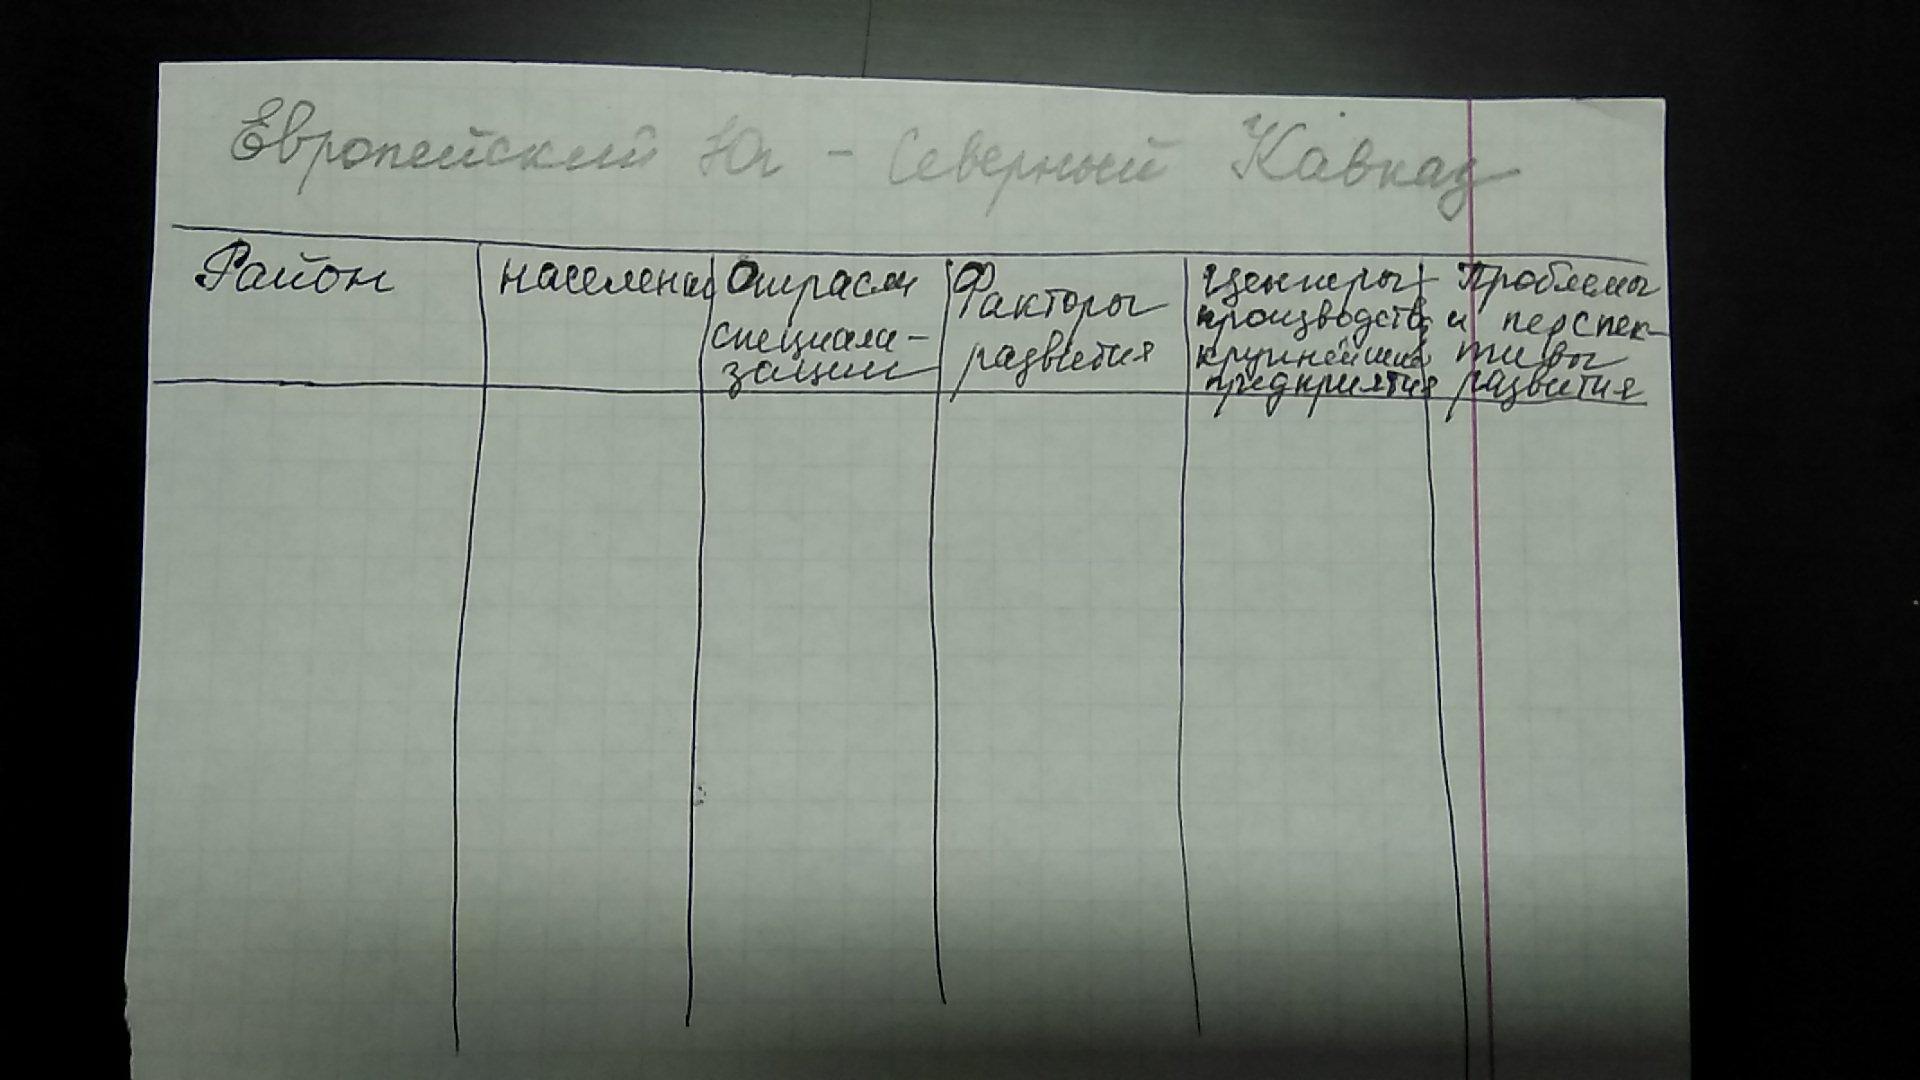 Европейский Юг - Северный Кавказ
Район
населения
Отрасли
специали-
зации
Факторы
развития
Центры
производства
крупнейшие
предприятия
Проблемы
и перспек-
тивы
развития